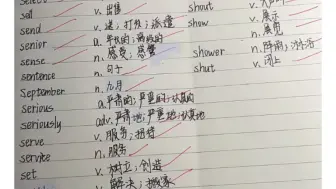 sell v. 出售
send v. 送；打发；派遣
senior a. 年长的；高级的
sense n. 感觉；感官
sentence n. 句子
September n. 九月
serious a. 严肃的；严重的；认真的
seriously adv. 严肃地；严重地；认真地
serve v. 服务；招待
service n. 服务
set v. 树立；创造
shout v.
show v. 展示
n. 展览
shower n. 阵雨；淋浴
shut v. 闭上